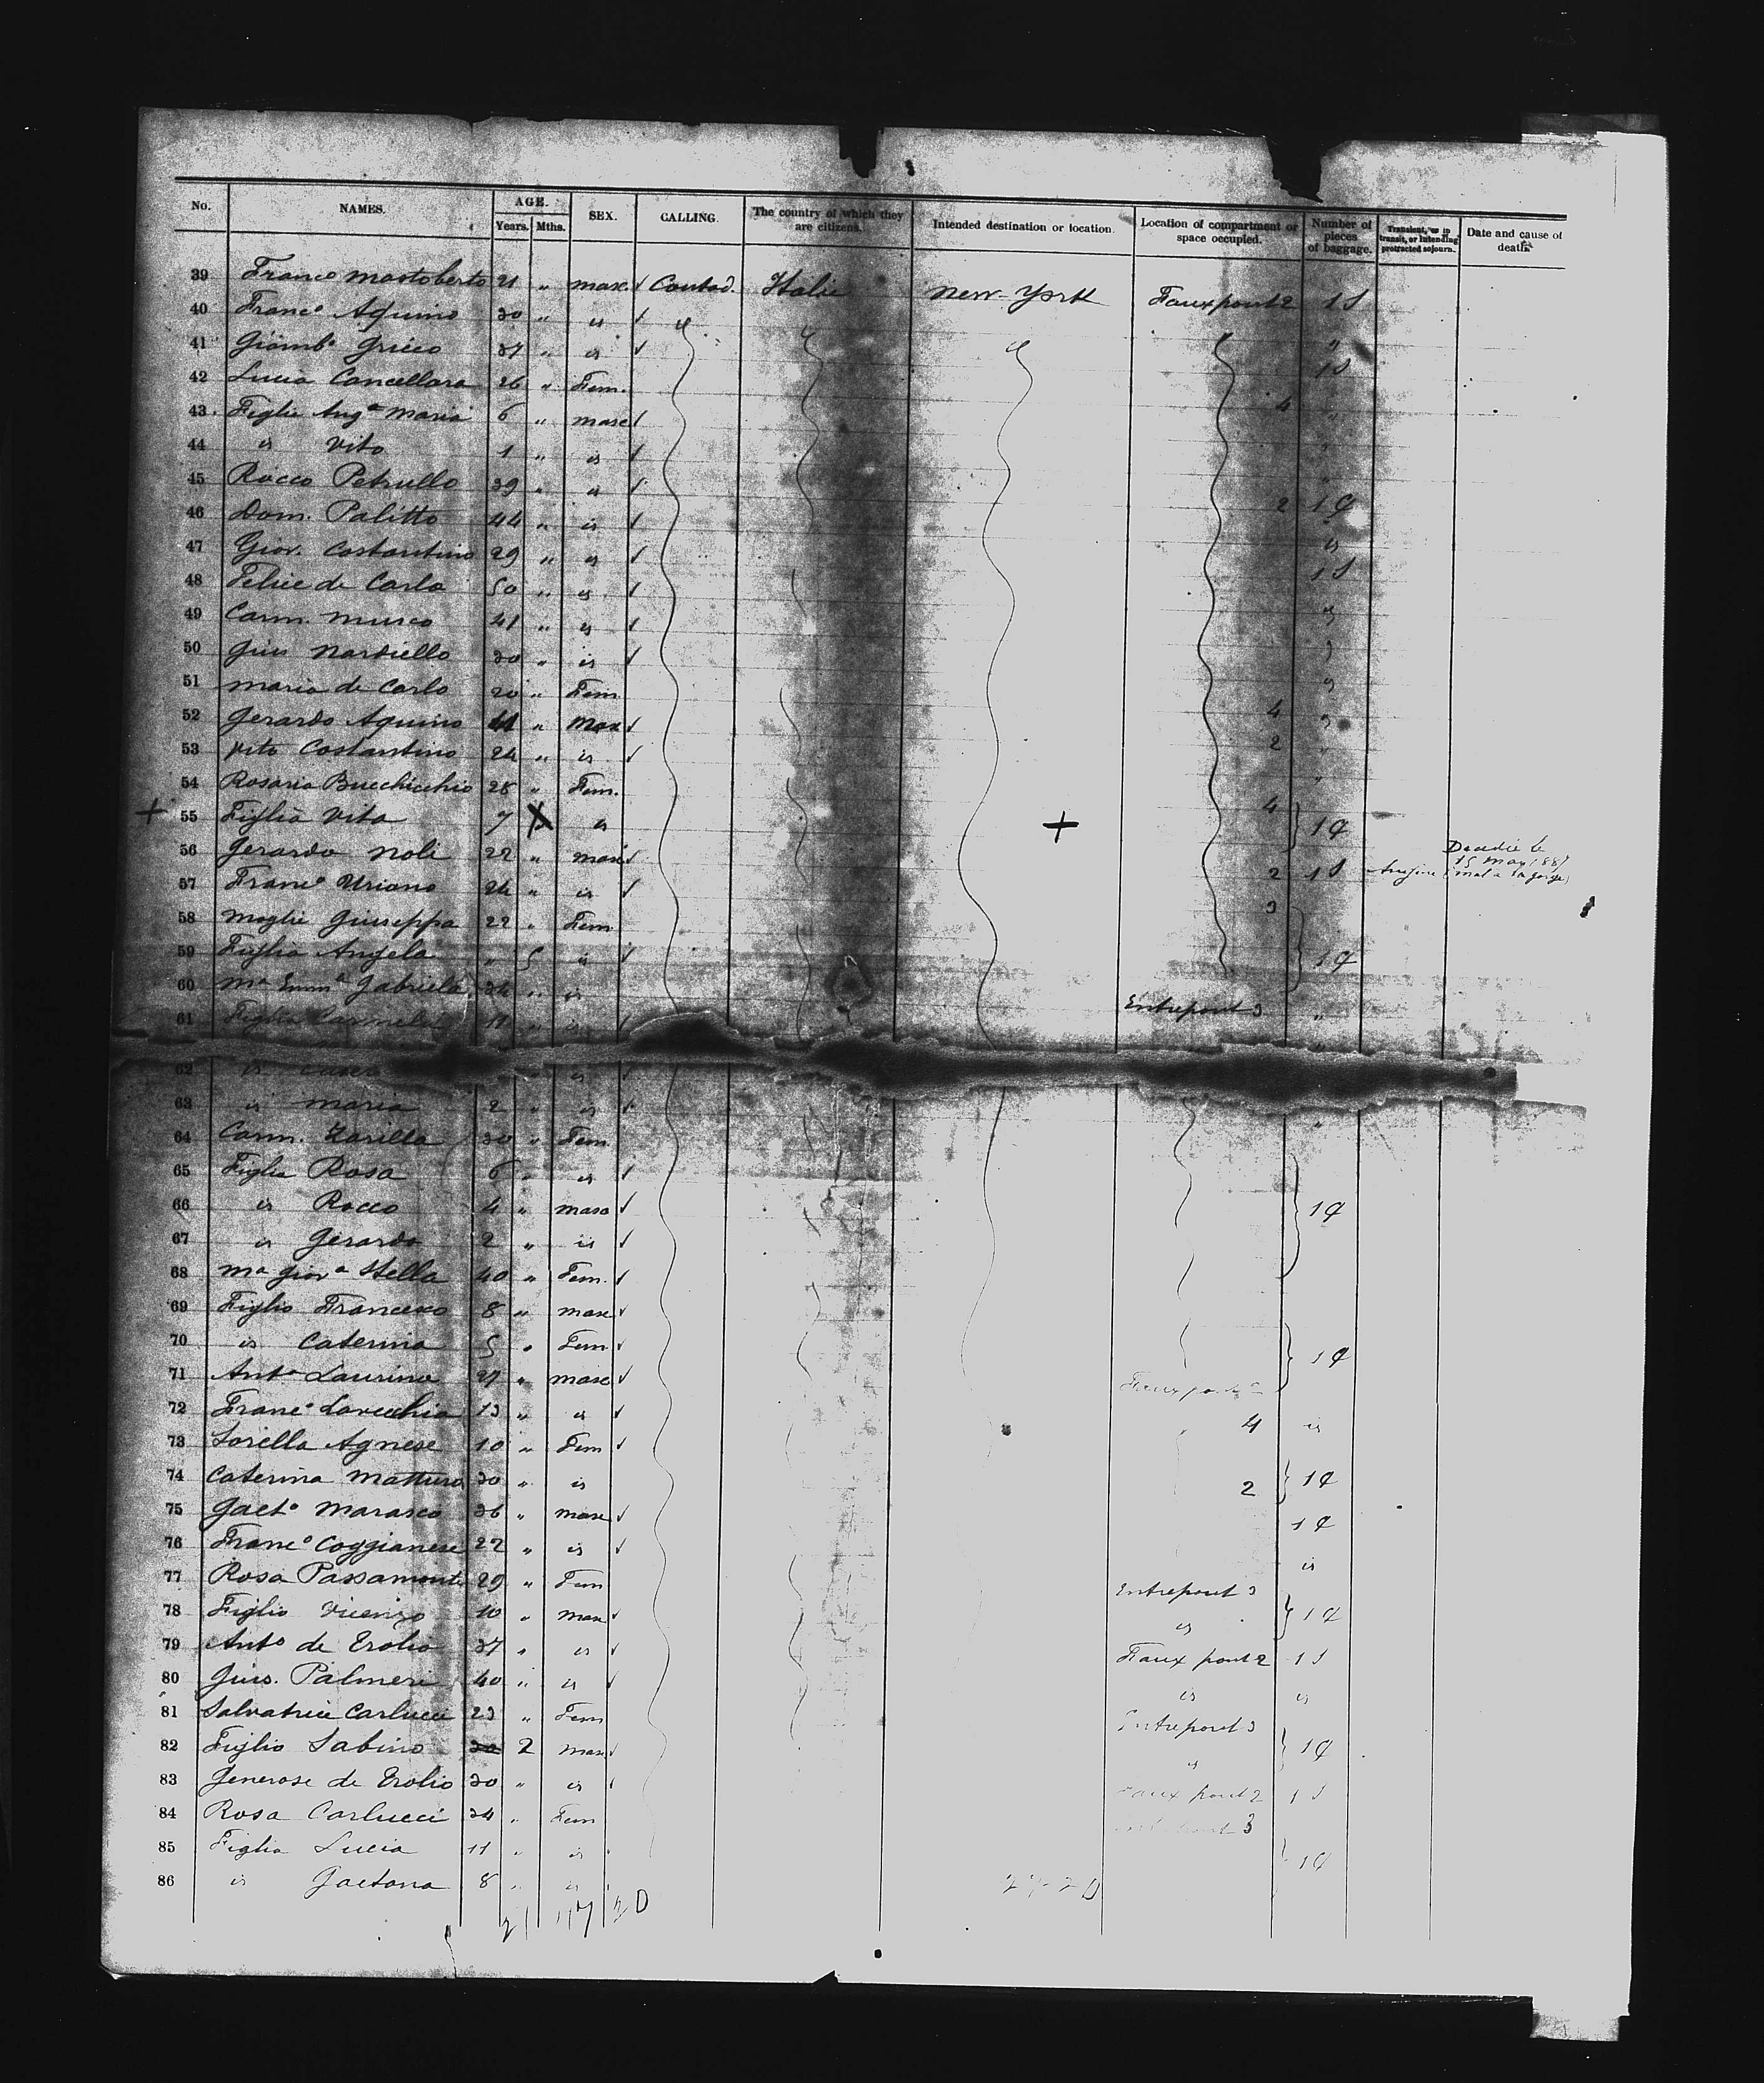 No. NAMES. AGE. Years. Mths. SEX. CALLING. The country of which they are citizens. Intended destination or location. Location of compartment or space occupied. Number of pieces of baggage. Transient, or in transit, or intending protracted sojourn. Date and cause of death.
39 Franco Mastoberto 21 " masc Contad. Italie New-York Faux pont 2 1 S
40 Franco Aquino 30 " is
41 Giamba Grieco 37 " is " 1 S
42 Lucia Cancellara 26 " Fem. 4
43 Figlia Anga Maria 6 " masc
44 is Vito 1 " is
45 Rocco Petrullo 39 " is
46 Dom. Palitto 44 " is 2 1 C
47 Giov. Costantino 29 " is is
48 Felice de Carlo 50 " is 1 S
49 Carm. Musco 41 " is
50 Gius Nardiello 30 " is
51 Maria de Carlo 20 " Fem
52 Gerardo Aquino 41 " Masc 4
53 Vito Costantino 24 " is 2
54 Rosaria Bucchicchio 28 " Fem.
55 Figlia Vita 7 is 4 1 C
56 Gerardo Noli 22 " masc 2 1 S Décédée le 15 May 1887 Angine (mal a la gorge)
57 Franco Uriano 24 " is 3
58 Moglie Giuseppa 22 " Fem
59 Figlia Angela " 5 is 1 C
60 Ma Emma Gabriela 34 " is Entrepont 3 "
61 Figlia Carmela 11 " is
62 is
63 is Maria 2 " is
64 Carm. Zarilla 30 " Fem "
65 Figlia Rosa 6 " is
66 is Rocco 4 " masc 1 C
67 is Gerardo 2 " is
68 Ma Giova Stella 40 " Fem.
69 Figlio Francesco 8 " masc
70 is Caterina 5 " Fem 1 C
71 Anto Laurino 27 " masc Faux pont
72 Franco Lovecchio 13 " is 4 is
73 Sorella Agnese 10 " Fem
74 Caterina Matturo 30 " is 2 1 C
75 Gaeto Marasco 36 " masc 1 C
76 Franco Coggianese 22 " is is
77 Rosa Passamonte 29 " Fem Entrepont 3
78 Figlio Vicenzo 10 " masc is 1 C
79 Anto de Erolio 37 " is Faux pont 2 1 S
80 Gius. Palmeri 40 " is is is
81 Salvatrice Carlucci 23 " Fem Entrepont 3
82 Figlio Sabino 2 masc is 1 C
83 Generose de Erolio 30 " is Faux pont 2 1 S
84 Rosa Carlucci 34 " Fem Entrepont 3
85 Figlia Lucia 11 " is 1 C
86 is Gaetana 8 " is